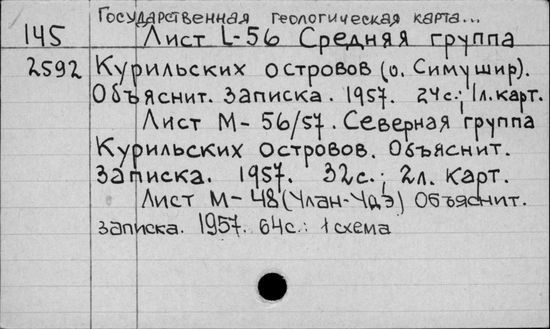 Государственная геологическая карта...
145 Лист L-56 Средняя группа
2592 Курильских островов (о. Симушир).
Объяснит. Записка. 1957. 24с.; 1л.карт.
Лист М-56/57. Северная группа
Курильских островов. Объяснит.
Записка. 1957. 32с.; 2л. карт.
Лист М-48 (Улан-Удэ) Объяснит.
записка. 1957. 64с.: 1 схема